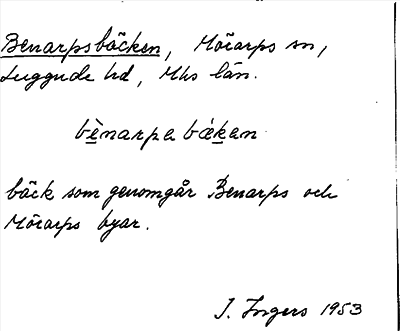 Benarpsbäcken, Mörarps sn,
Luggude hd, Mhs län.
bènarpa bækən
bäck som genomgår Benarps och
Mörarps byar.
I. Ingers 1953